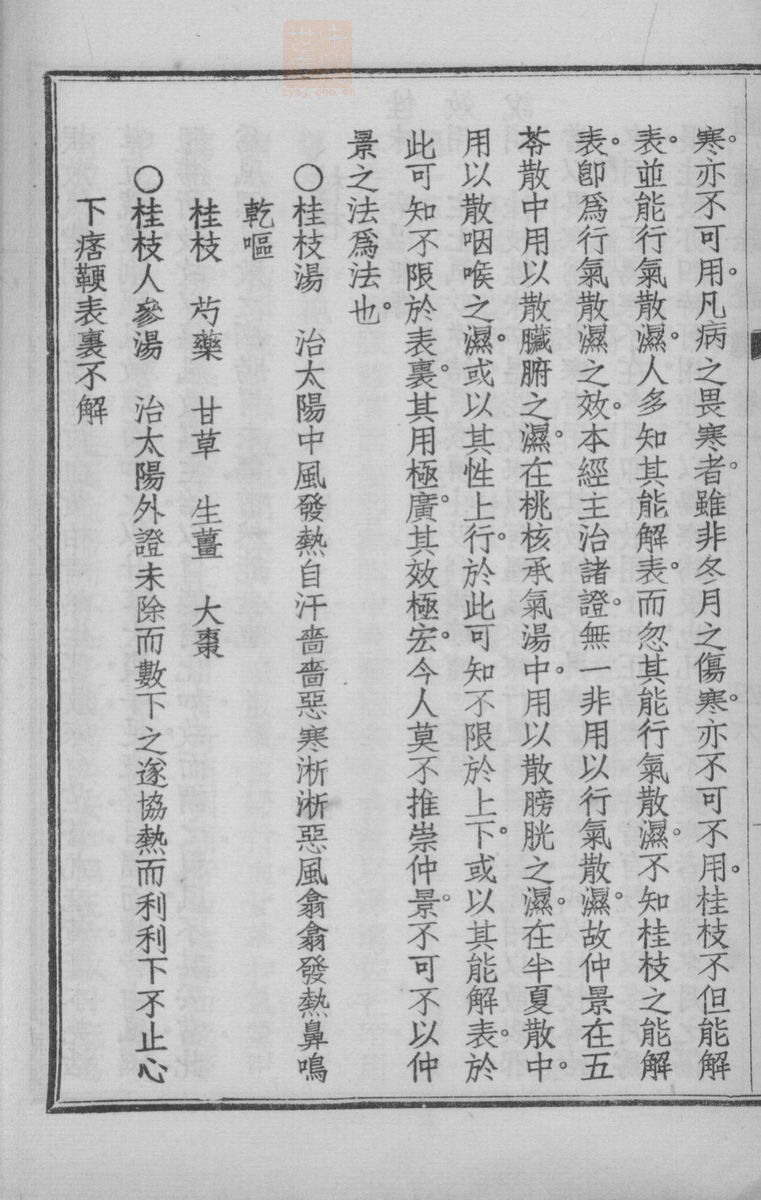 寒。亦不可用。凡病之畏寒者。雖非冬月之傷寒。亦不可不用。桂枝不但能解
表。並能行氣散濕。人多知其能解表。而忽其能行氣散濕。不知桂枝之能解
表。卽爲行氣散濕之效。本經主治諸證。無一非用以行氣散濕。故仲景在五
苓散中用以散臟腑之濕。在桃核承氣湯中。用以散膀胱之濕。在半夏散中。
用以散咽喉之濕。或以其性上行。於此可知不限於上下。或以其能解表。於
此可知不限於表裏。其用極廣。其效極宏。今人莫不推崇仲景。不可不以仲
景之法爲法也。
○桂枝湯　治太陽中風發熱自汗嗇嗇惡寒淅淅惡風翕翕發熱鼻鳴
乾嘔
桂枝　芍藥　甘草　生薑　大棗
○桂枝人參湯　治太陽外證未除而數下之遂協熱而利利下不止心
下痞鞕表裏不解